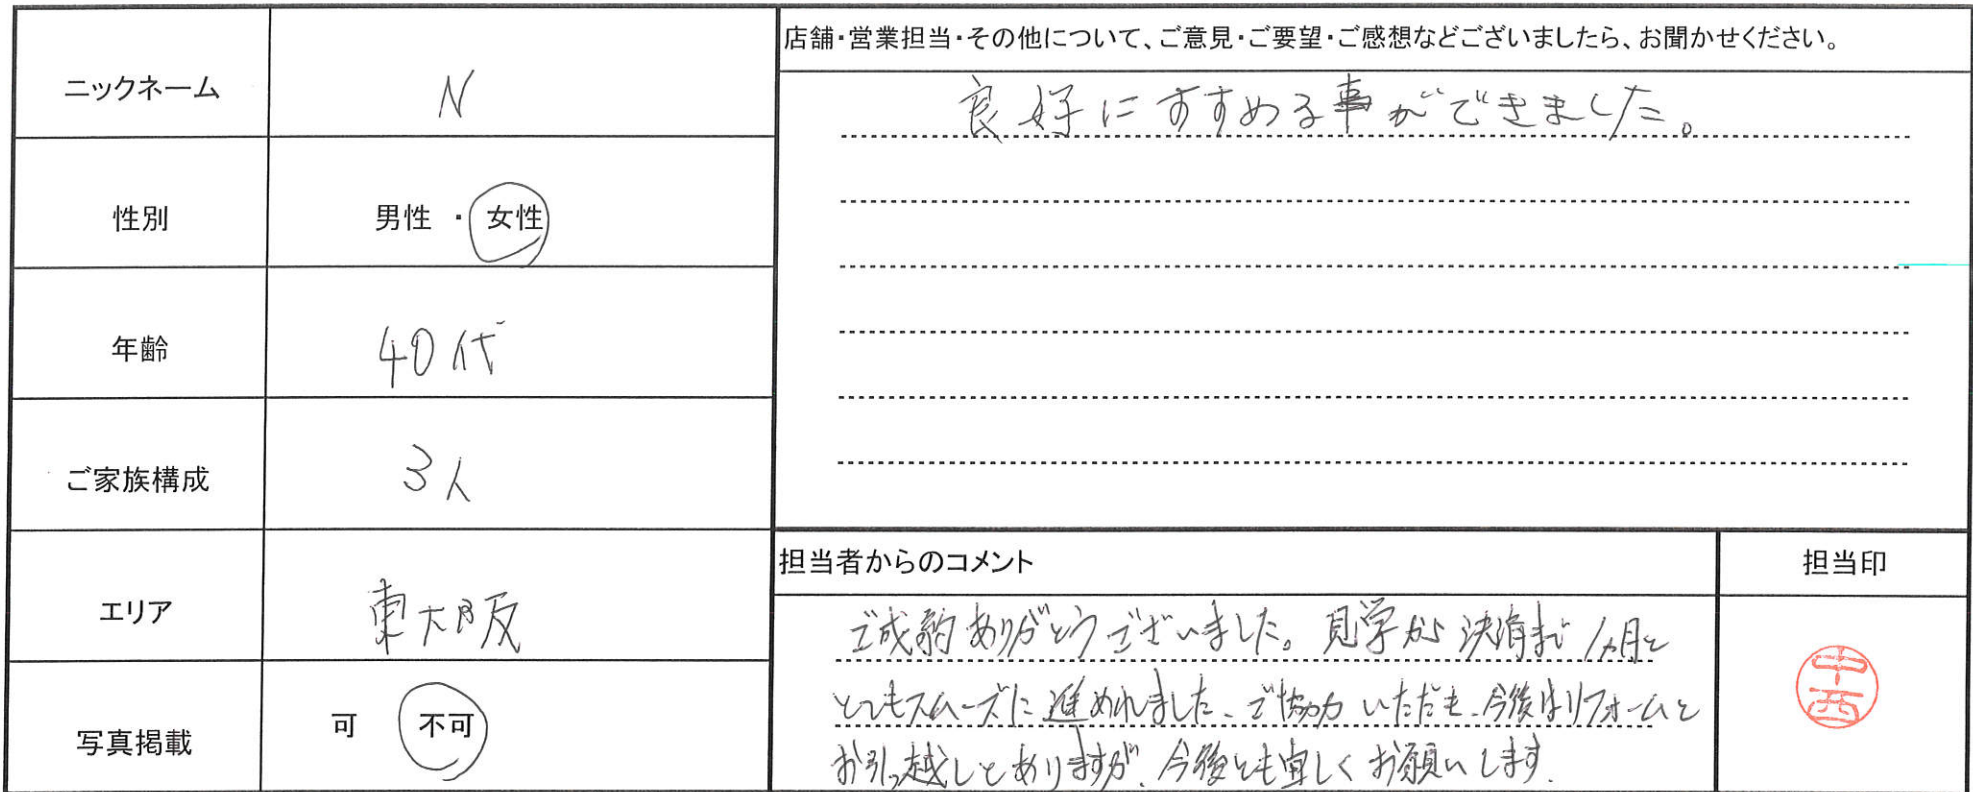 ニックネーム N
性別 男性 ・ 女性
年齢 40代
ご家族構成 3人
エリア 東大阪
写真掲載 可 不可
店舗・営業担当・その他について、ご意見・ご要望・ご感想などございましたら、お聞かせください。
良好にすすめる事ができました。
担当者からのコメント
ご成約ありがとうございました。見学から決済まで1ヵ月と
とてもスムーズに進めれました。ご協力いただき、今後はリフォームと
お引っ越しとありますが、今後とも宜しくお願いします。
担当印
中西